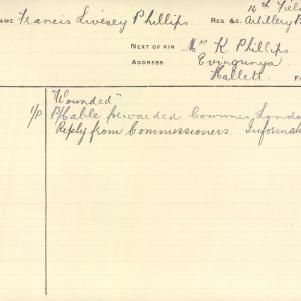 NAME Francis Livesey Phillips REG &C. 14th Field Artillery B
NEXT OF KIN Mrs K. Phillips
ADDRESS Evingunya.
Hallett.
"Wounded"
1/P P/Cable forwarded Commrs, London
Reply from Commissioners. Informat